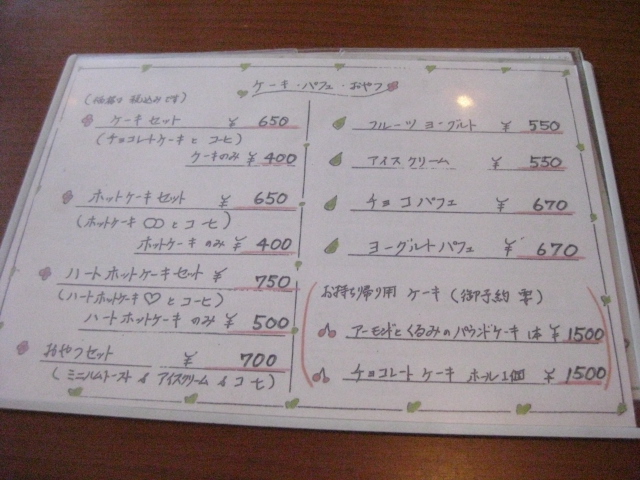 ケーキ・パフェ・おやつ
(価額は税込みです)
ケーキセット ¥650
(チョコレートケーキとコーヒ)
ケーキのみ ¥400
ホットケーキセット ¥650
(ホットケーキ○○とコーヒ)
ホットケーキのみ ¥400
ハートホットケーキセット ¥750
(ハートホットケーキ♡とコーヒ)
ハートホットケーキのみ ¥500
おやつセット ¥700
(ミニハムトースト アイスクリーム コーヒ)
フルーツヨーグルト ¥550
アイスクリーム ¥550
チョコパフェ ¥670
ヨーグルトパフェ ¥670
お持ち帰り用ケーキ(御予約 要)
アーモンドとくるみのパウンドケーキ 1本 ¥1500
チョコレートケーキ ホール1個 ¥1500